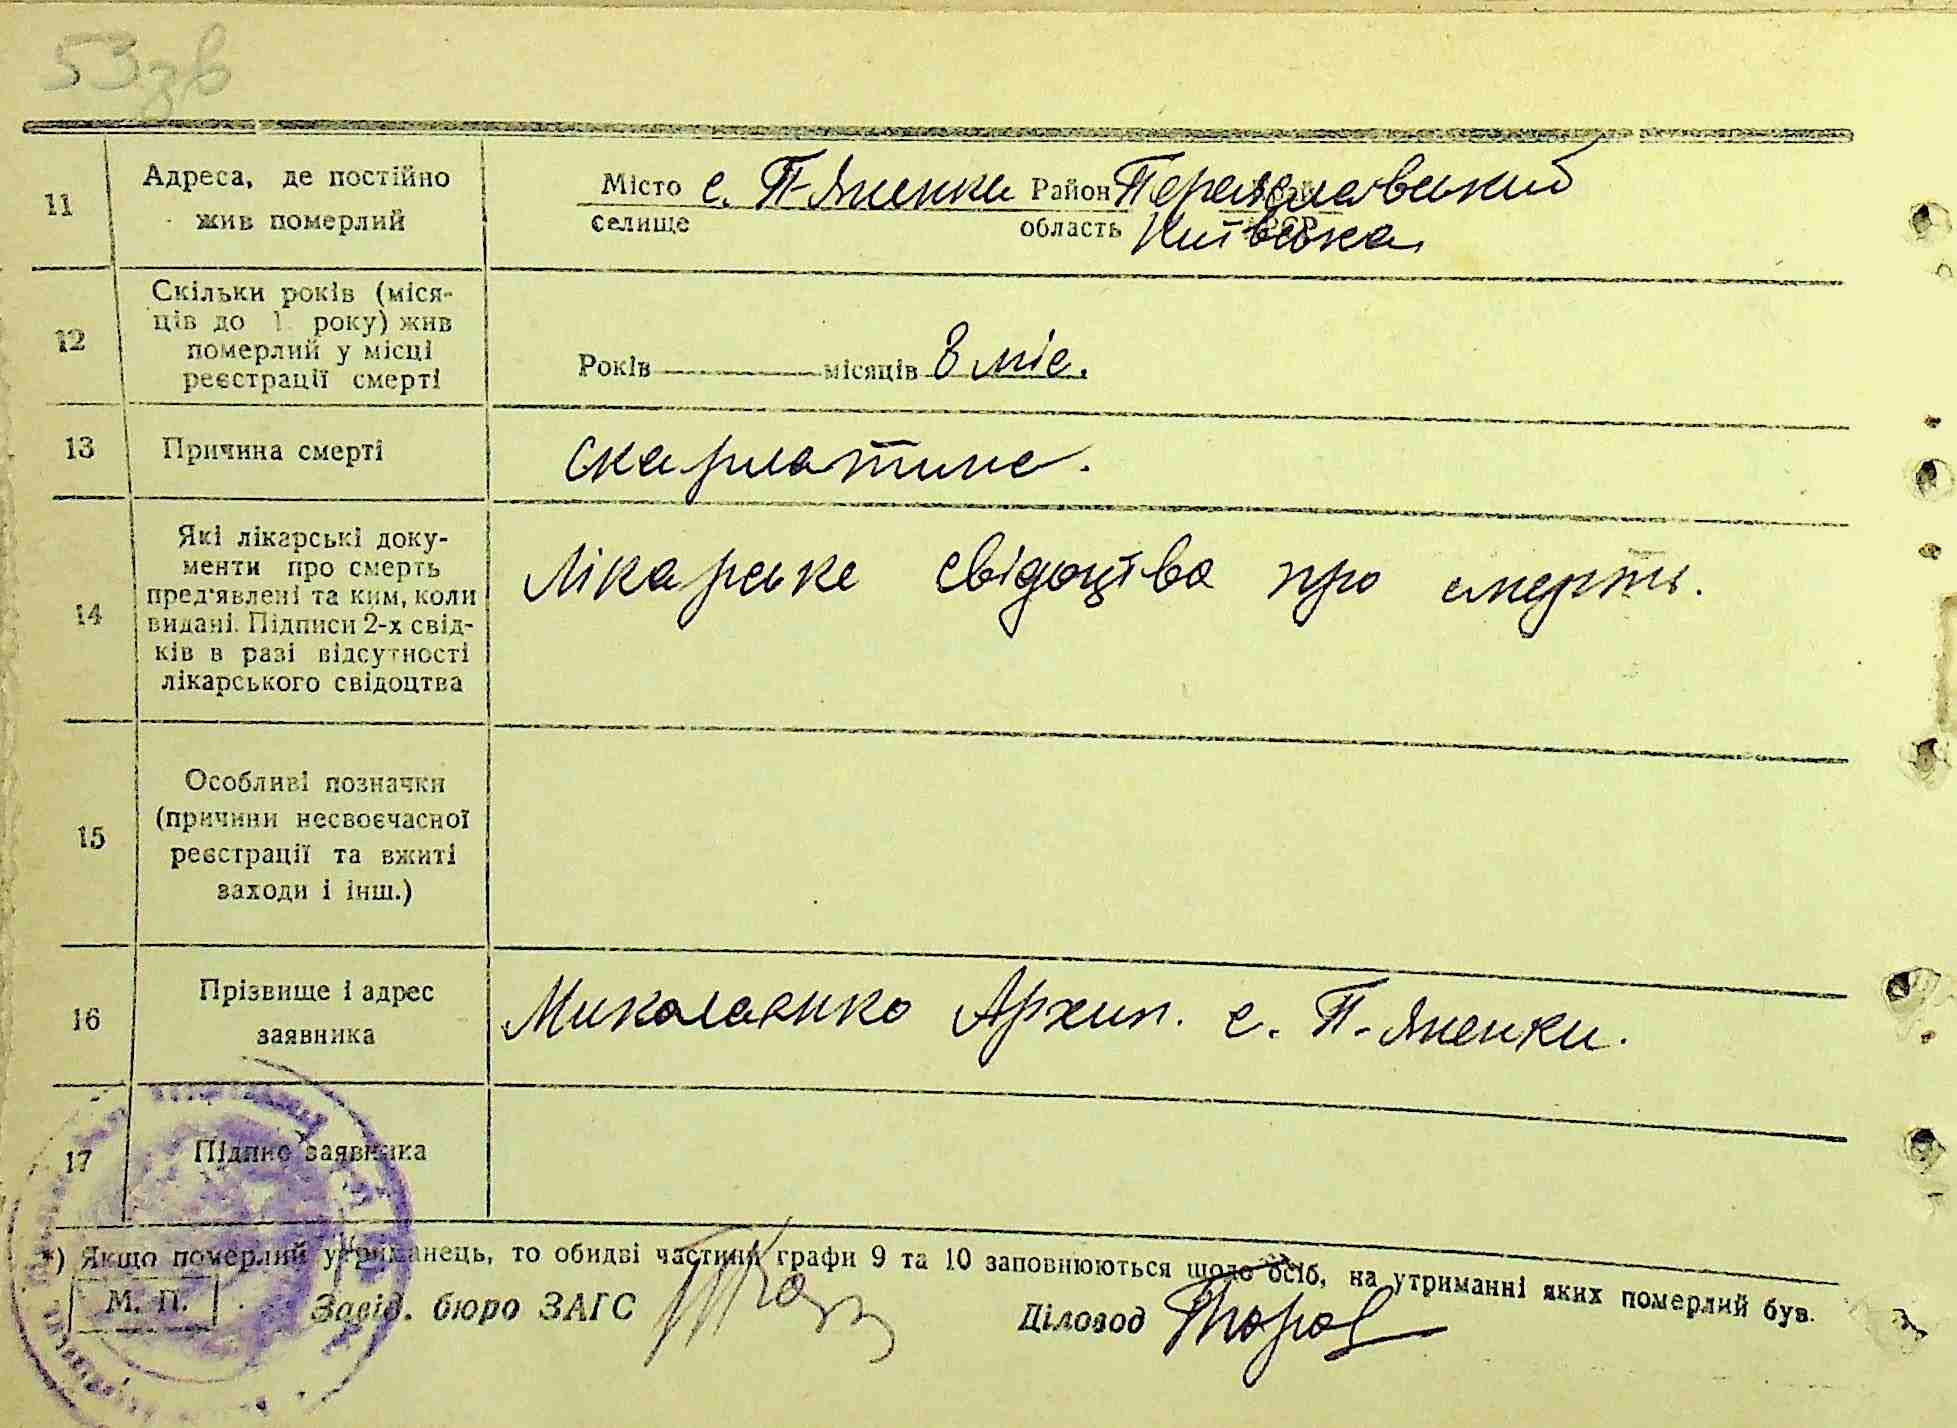 53зв
11
Адреса, де постійно
жив померлий
Місто с. П-Яненки Район Переяславський
селище область Київська
12
Скільки років (міся-
ців до 1 року) жив
померлий у місці
реєстрації смерті
Років місяців 8 міс.
13
Причина смерті
скарлатина.
14
Які лікарські доку-
менти про смерть
пред'явлені та ким, коли
видані. Підписи 2-х свід-
ків в разі відсутності
лікарського свідоцтва
Лікарське свідоцтво про смерть.
15
Особливі позначки
(причини несвоєчасної
реєстрації та вжиті
заходи і інш.)
16
Прізвище і адрес
заявника
Миколаєнко Архип. с. П-Яненки.
17
Підпис заявника
*) Якщо померлий утриманець, то обидві частини графи 9 та 10 заповнюються щодо осіб, на утриманні яких померлий був.
М. П.
Завід. бюро ЗАГС
Діловод